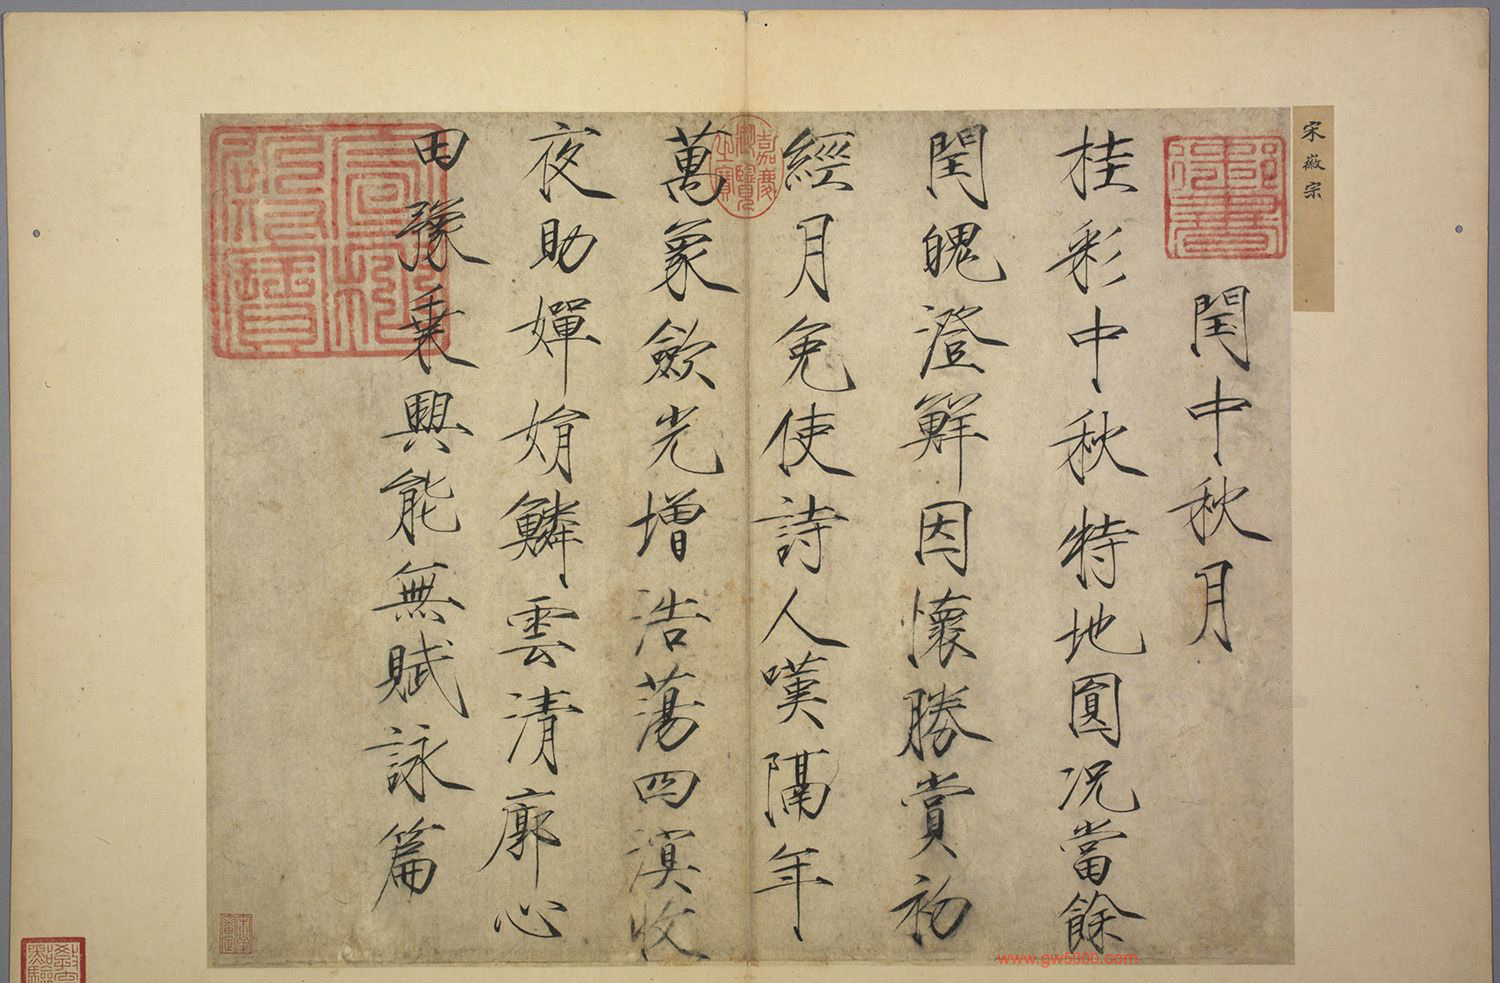 宋徽宗
御書
閏中秋月
桂彩中秋特地圓況當餘
閏魄澄鮮因懷勝賞初
經月免使詩人嘆隔年
嘉慶御覽之寶
萬象歛光增浩蕩四溟收
夜助嬋娟鱗雲清廓心
田豫乗興能無賦詠篇
宣和殿寶
宋犖審定
www.gw5000.com